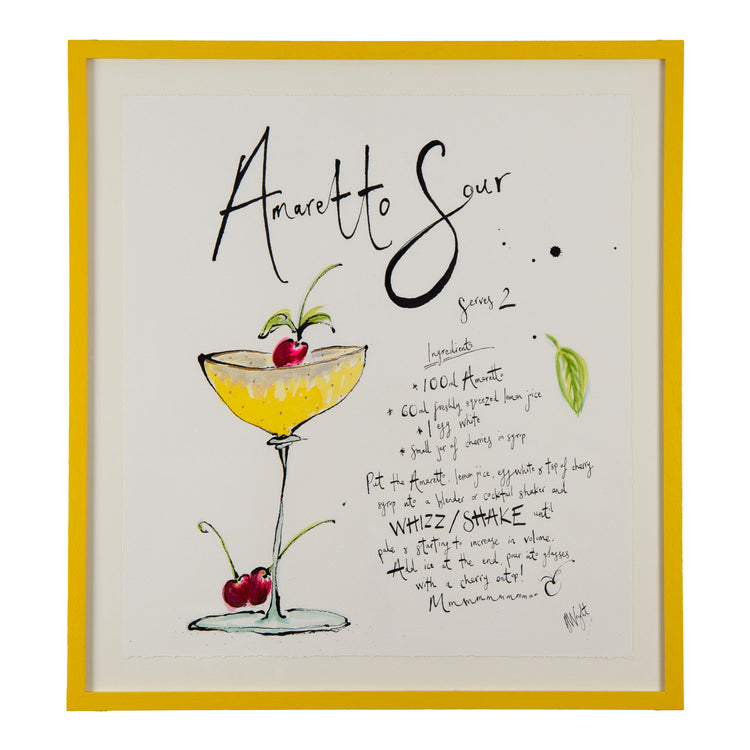 Amaretto Sour
Serves 2
Ingredients
* 100ml Amaretto
* 60ml freshly squeezed lemon jice
* 1 egg white
* Small jar of cherries in syrup
Put the Amaretto, lemon jice, egg white & tsp of cherry
syrup into a blender or cocktail shaker and
WHIZZ/SHAKE until
pale & starting to increase in volume.
Add ice at the end, pour into glasses
with a cherry ontop!
Mmmmmmmmm